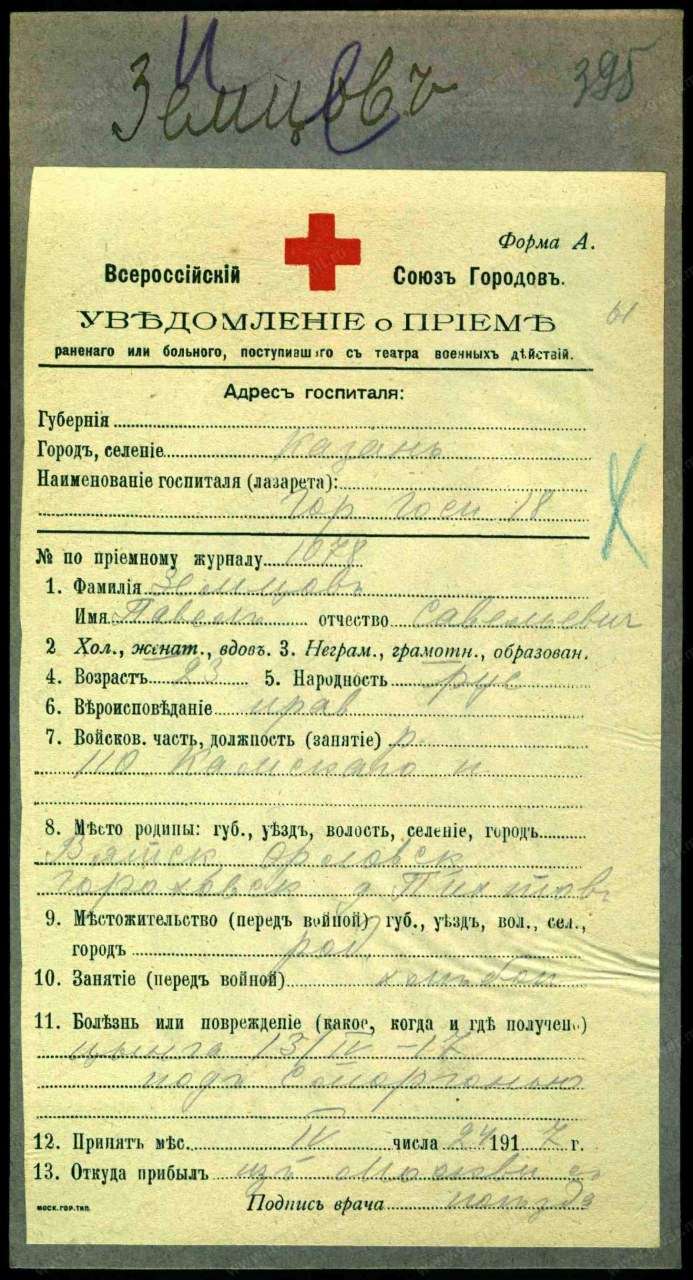 Земцовъ 395
Форма А.
Всероссійскій Союзъ Городовъ.
УВѢДОМЛЕНІЕ о ПРІЕМѢ 61
раненаго или больного, поступившаго съ театра военныхъ дѣйствій.
Адресъ госпиталя:
Губернія
Городъ, селеніе Казань
Наименованіе госпиталя (лазарета):
Гор Госп 18
№ по пріемному журналу 1078
1. Фамилія Земцовъ
Имя Павелъ отчество Савельевич
2 Хол., женат., вдовъ. 3. Неграм., грамотн., образован.
4. Возрастъ 23 5. Народность рус
6. Вѣроисповѣданіе прав
7. Войсков. часть, должность (занятіе) р.
110 Камскаго п
8. Мѣсто родины: губ., уѣздъ, волость, селеніе, городъ
Вятск Орловск
д.
9. Мѣстожительство (передъ войной) губ., уѣздъ, вол., сел.,
городъ
10. Занятіе (передъ войной)
11. Болѣзнь или поврежденіе (какое, когда и гдѣ получено)
цынга 13/IV-17
подъ Сморгонью
12. Принятъ мѣс. IV числа 24 1917 г.
13. Откуда прибылъ изъ Москвы съ
Подпись врача поѣзда
МОСК.ГОР.ТИП.